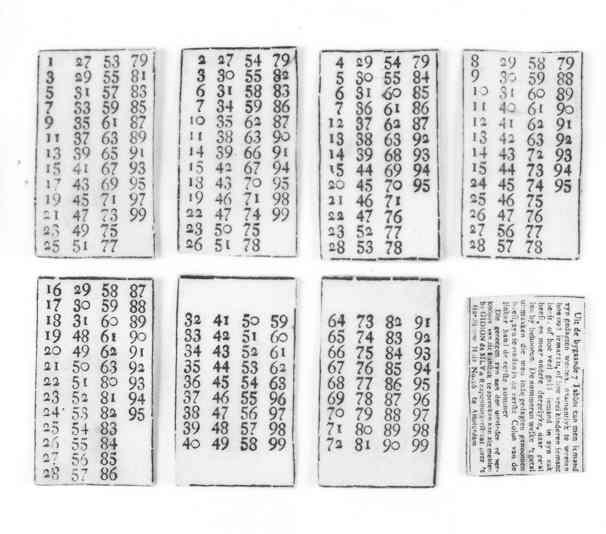 1 27 53 79
3 29 55 81
5 31 57 83
7 33 59 85
9 35 61 87
11 37 63 89
13 39 65 91
15 41 67 93
17 43 69 95
19 45 71 97
21 47 73 99
23 49 75
25 51 77
2 27 54 79
3 30 55 82
6 31 58 83
7 34 59 86
10 35 62 87
11 38 63 90
14 39 66 91
15 42 67 94
18 43 70 95
19 46 71 98
22 47 74 99
23 50 75
26 51 78
4 29 54 79
5 30 55 84
6 31 60 85
7 36 61 86
12 37 62 87
13 38 63 92
14 39 68 93
15 44 69 94
20 45 70 95
21 46 71
22 47 76
23 52 77
28 53 78
8 29 58 79
9 30 59 88
10 31 60 89
11 40 61 90
12 41 62 91
13 42 63 92
14 43 72 93
15 44 73 94
24 45 74 95
25 46 75
26 47 76
27 56 77
28 57 78
16 29 58 87
17 30 59 88
18 31 60 89
19 48 61 90
20 49 62 91
21 50 63 92
22 51 80 93
23 52 81 94
24 53 82 95
25 54 83
26 55 84
27 56 85
28 57 86
32 41 50 59
33 42 51 60
34 43 52 61
35 44 53 62
36 45 54 63
37 46 55 96
38 47 56 97
39 48 57 98
40 49 58 99
64 73 82 91
65 74 83 92
66 75 84 93
67 76 85 94
68 77 86 95
69 78 87 96
70 79 88 97
71 80 89 98
72 81 90 99
Uit de bygaande 7 Tables can men iemand
zyn gedagten
of hoe veel geld iemand in zyn zak
heeft, en meer andere dergelyke, daar getal
by behooren. De nommeren welke 't getal
uitmaaken die men inde gedagten genoomen
heeft, de eerste Colum van de
linker hand de eerste nommer
by GIDEON da SILVA over 't
te Amsterdam